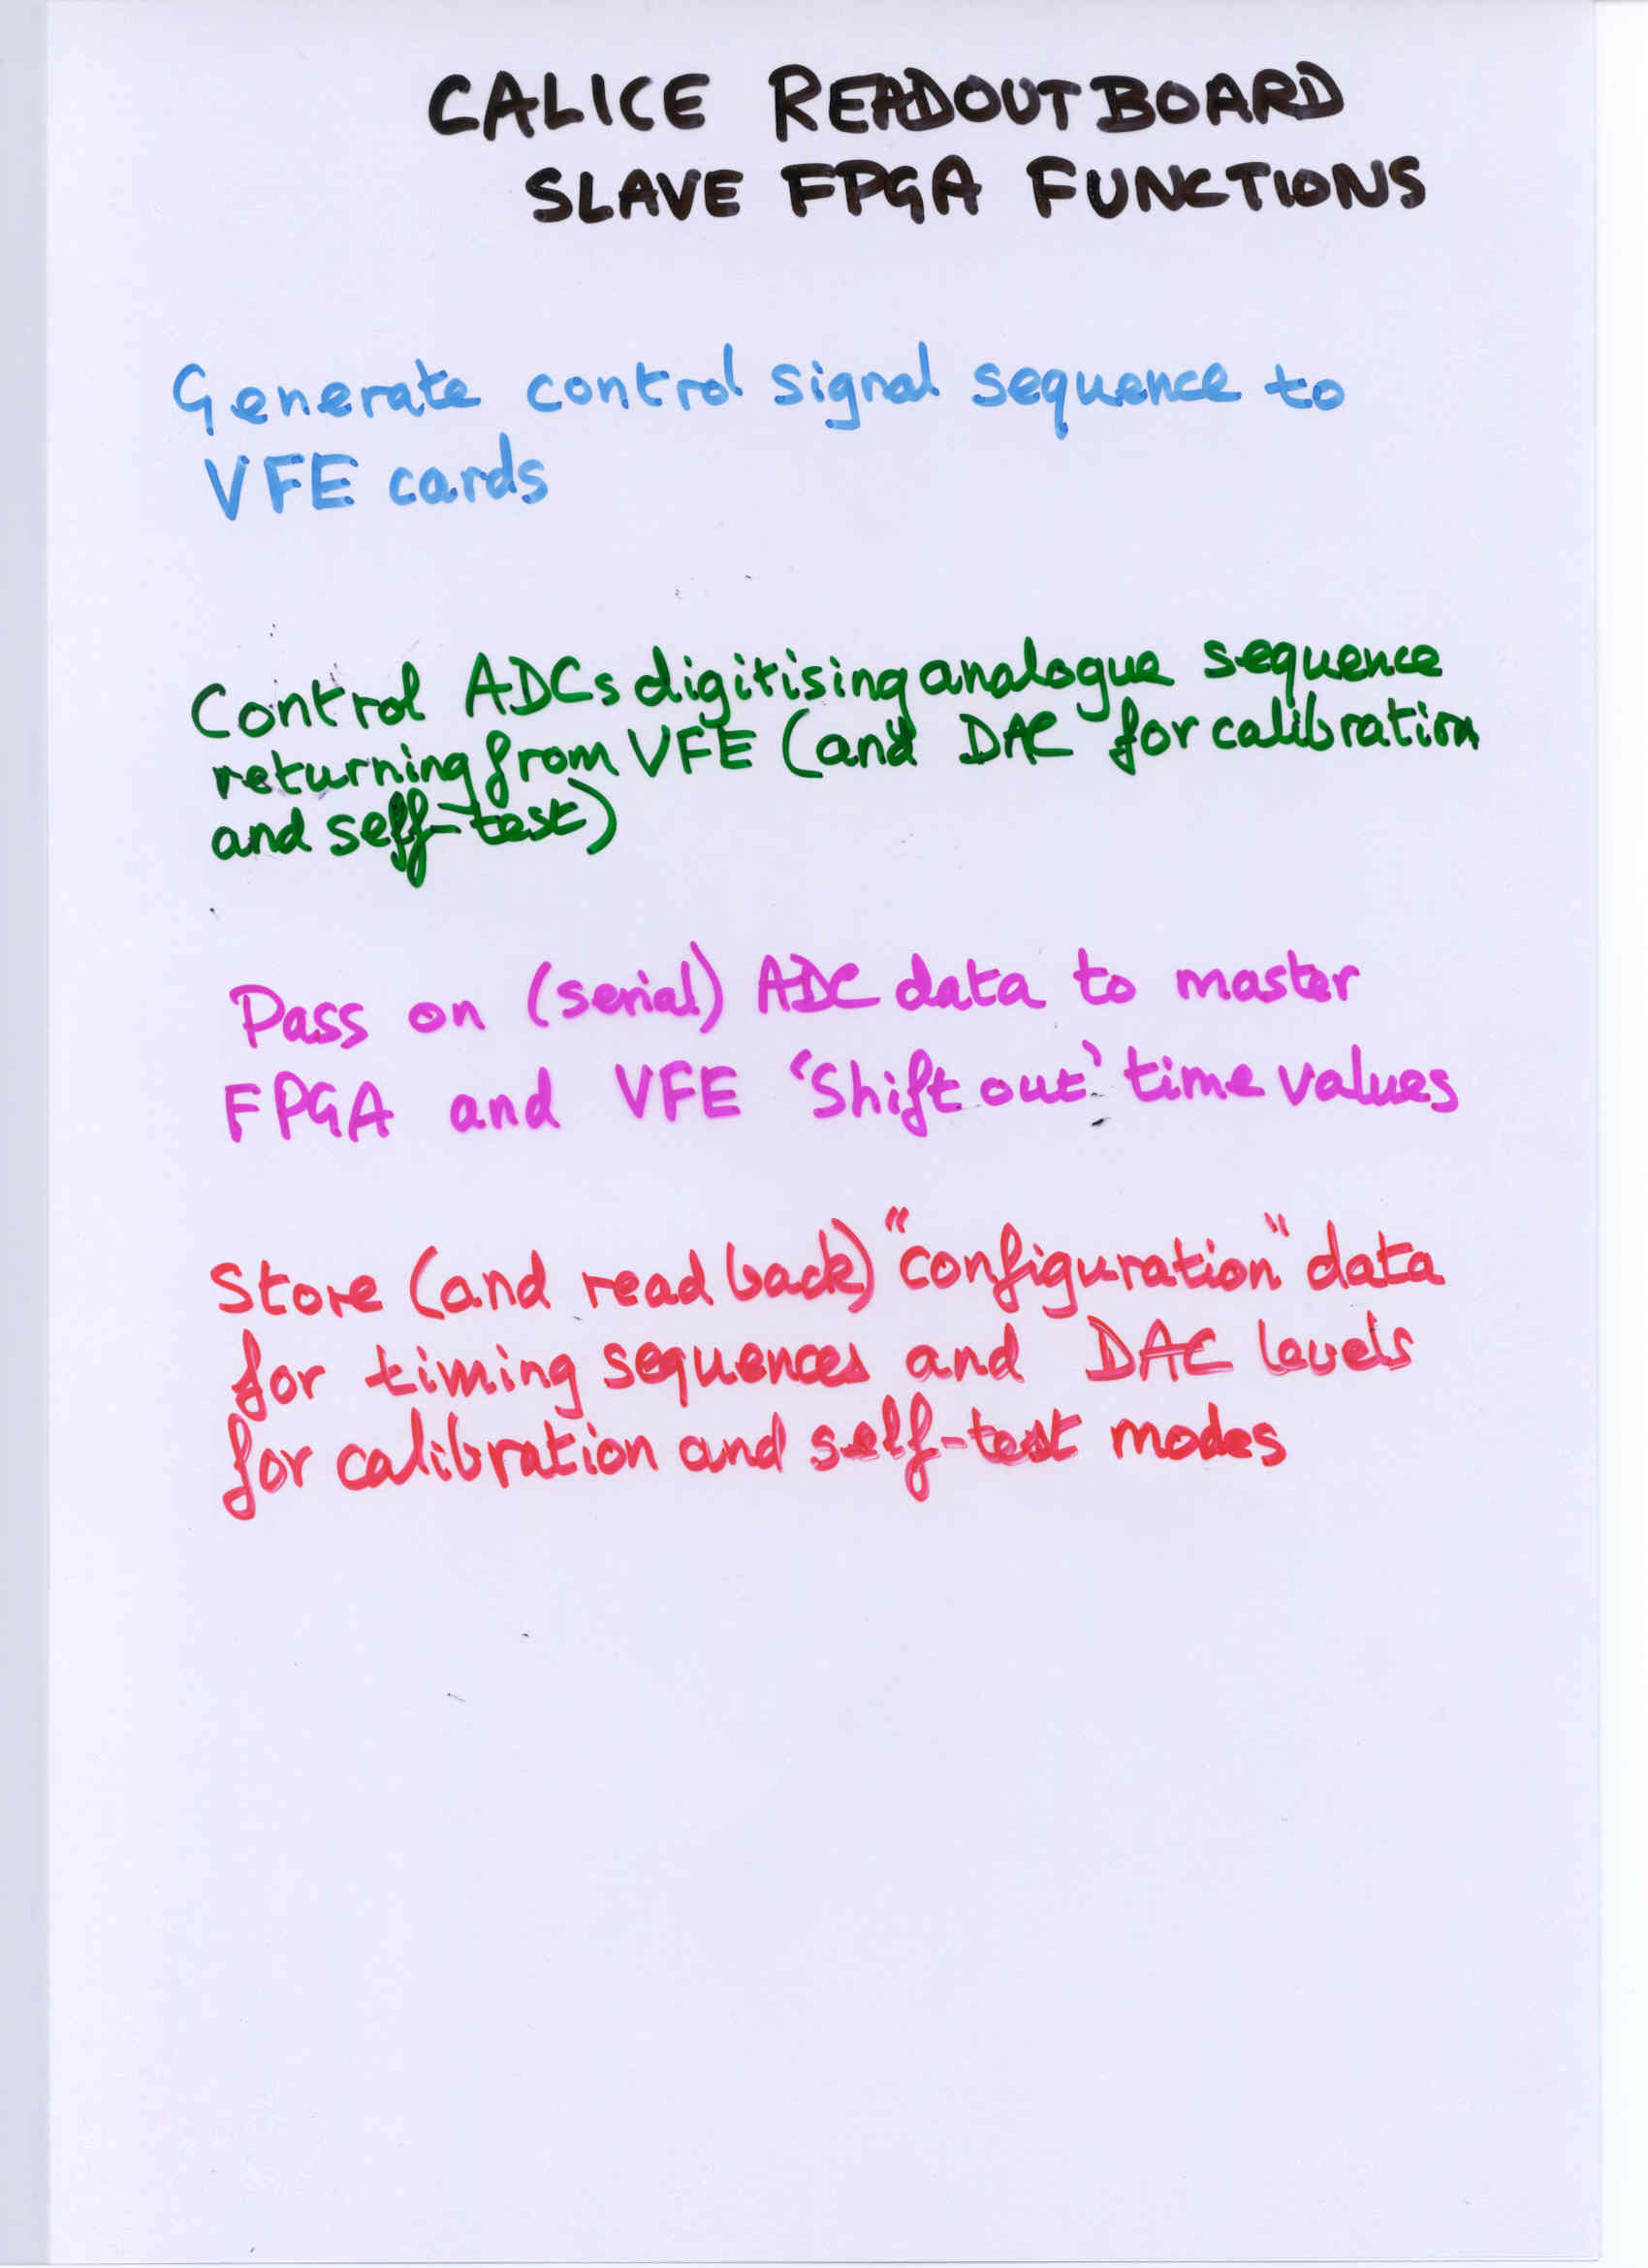 CALICE READOUT BOARD
SLAVE FPGA FUNCTIONS
Generate control signal sequence to
VFE cards
Control ADCs digitising analogue sequence
returning from VFE (and DAC for calibration
and self-test)
Pass on (serial) ADC data to master
FPGA and VFE 'Shift out' time values
Store (and read back) "configuration" data
for timing sequences and DAC levels
for calibration and self-test modes